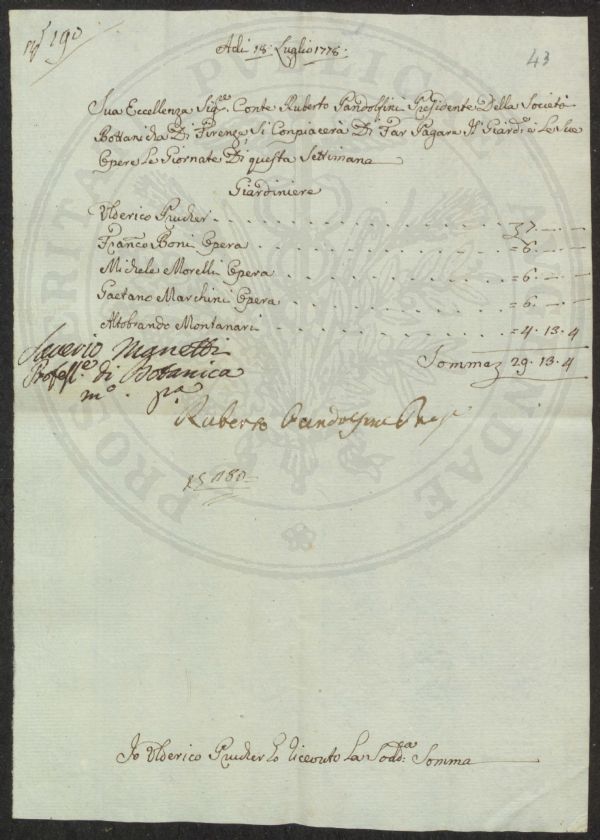 190
Adi 18: Luglio 1778:
43
Sua Eccellenza Sig.re Conte Ruberto Pandolfini Presidente Della Società
Bottanicha Di Firenze Si Conpiacerà Di Far Pagare Il Giard.e e Le Sue
Opere Le Giornate Di questa Settimana
Giardiniere
Ulderico Prucker 7
Franc.o Boni Opera = 6. — —
Michele Morelli Opera = 6. — —
Gaetano Marchini Opera = 6. — —
Altobrando Montanari = 4. 13. 4
Somma 29. 13. 4
Saverio Manetti
Profess.e di Botanica
m.o p.a
Ruberto Pandolfini Pres.
Io Ulderico Prucker ho Riceuto La Sodd.a Somma
PUBLICAE
PROSPERITATI AUGENDAE